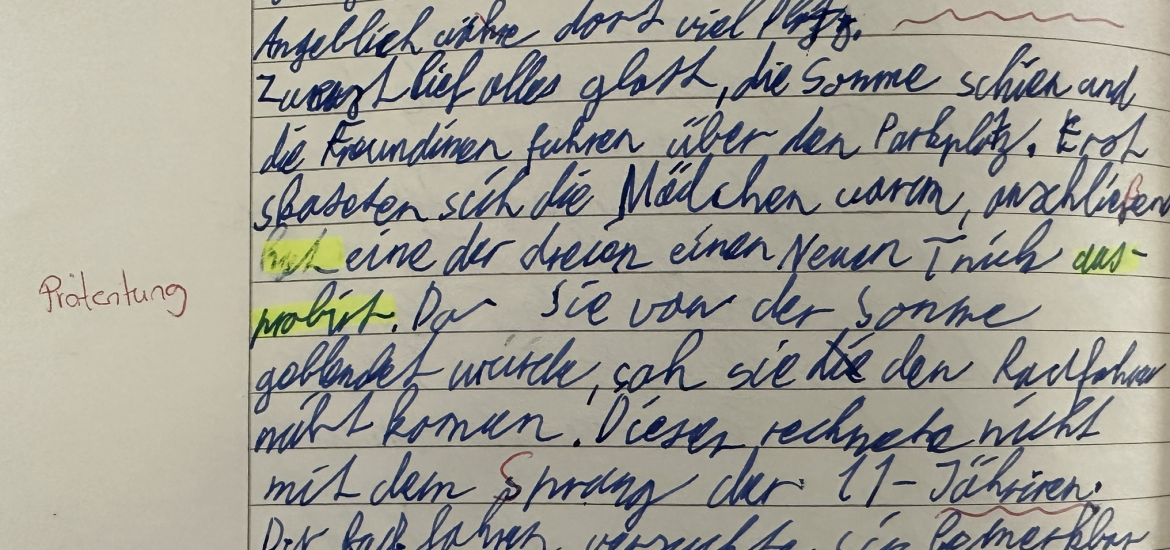 Angeblich währe dort viel Platz.
Zuerst lief alles glatt, die Sonne schien und
die Freundinen fuhren über den Parkplatz. Erst
skateten sich die Mädchen warm, anschließend
hat eine der dreien einen Neuen Trick aus-
Prätentung
probirt. Da Sie von der Sonne
geblendet wurde, sah sie den Radfahrer
nicht komen. Dieser rechnete nicht
mit dem Sprung der 11-Jähriren.
Der Radfahrer versuchte sich